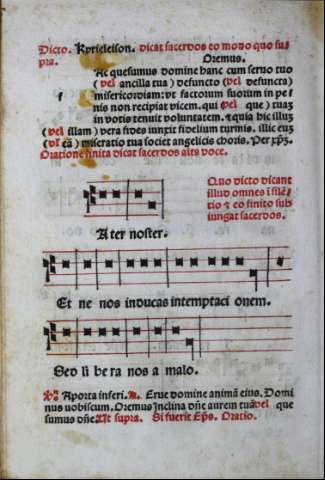 Dicto. Kyrieleison. dicat sacerdos eo modo quo su
pra. Oremus.
Ac quesumus domine hanc cum seruo tuo
(vel ancilla tua) defuncto (vel defuncta)
misericordiam: vt factorum suorum in pe
nis non recipiat vicem. qui (vel que) tuaʒ
in votis tenuit voluntatem. ⁊ quia hic illuʒ
(vel illam) vera fides iunxit fidelium turmis. illic euʒ
(vel eā) miseratio tua societ angelicis choris. Per xp̄ʒ.
Oratione finita dicat sacerdos alta voce.
Quo dicto dicant
illud omnes ī silē
tio ⁊ eo finito sub
iungat sacerdos.
Ater noster.
Et ne nos inducas intemptaci onem.
Sed li be ra nos a malo.
Aporta inferi. Erue domine animā eius. Domi
nus uobiscum. Oremus Inclina dn̄e aurem tuā vel que
sumus dn̄e. Ut supra. Si fuerit Ep̄s. Oratio.